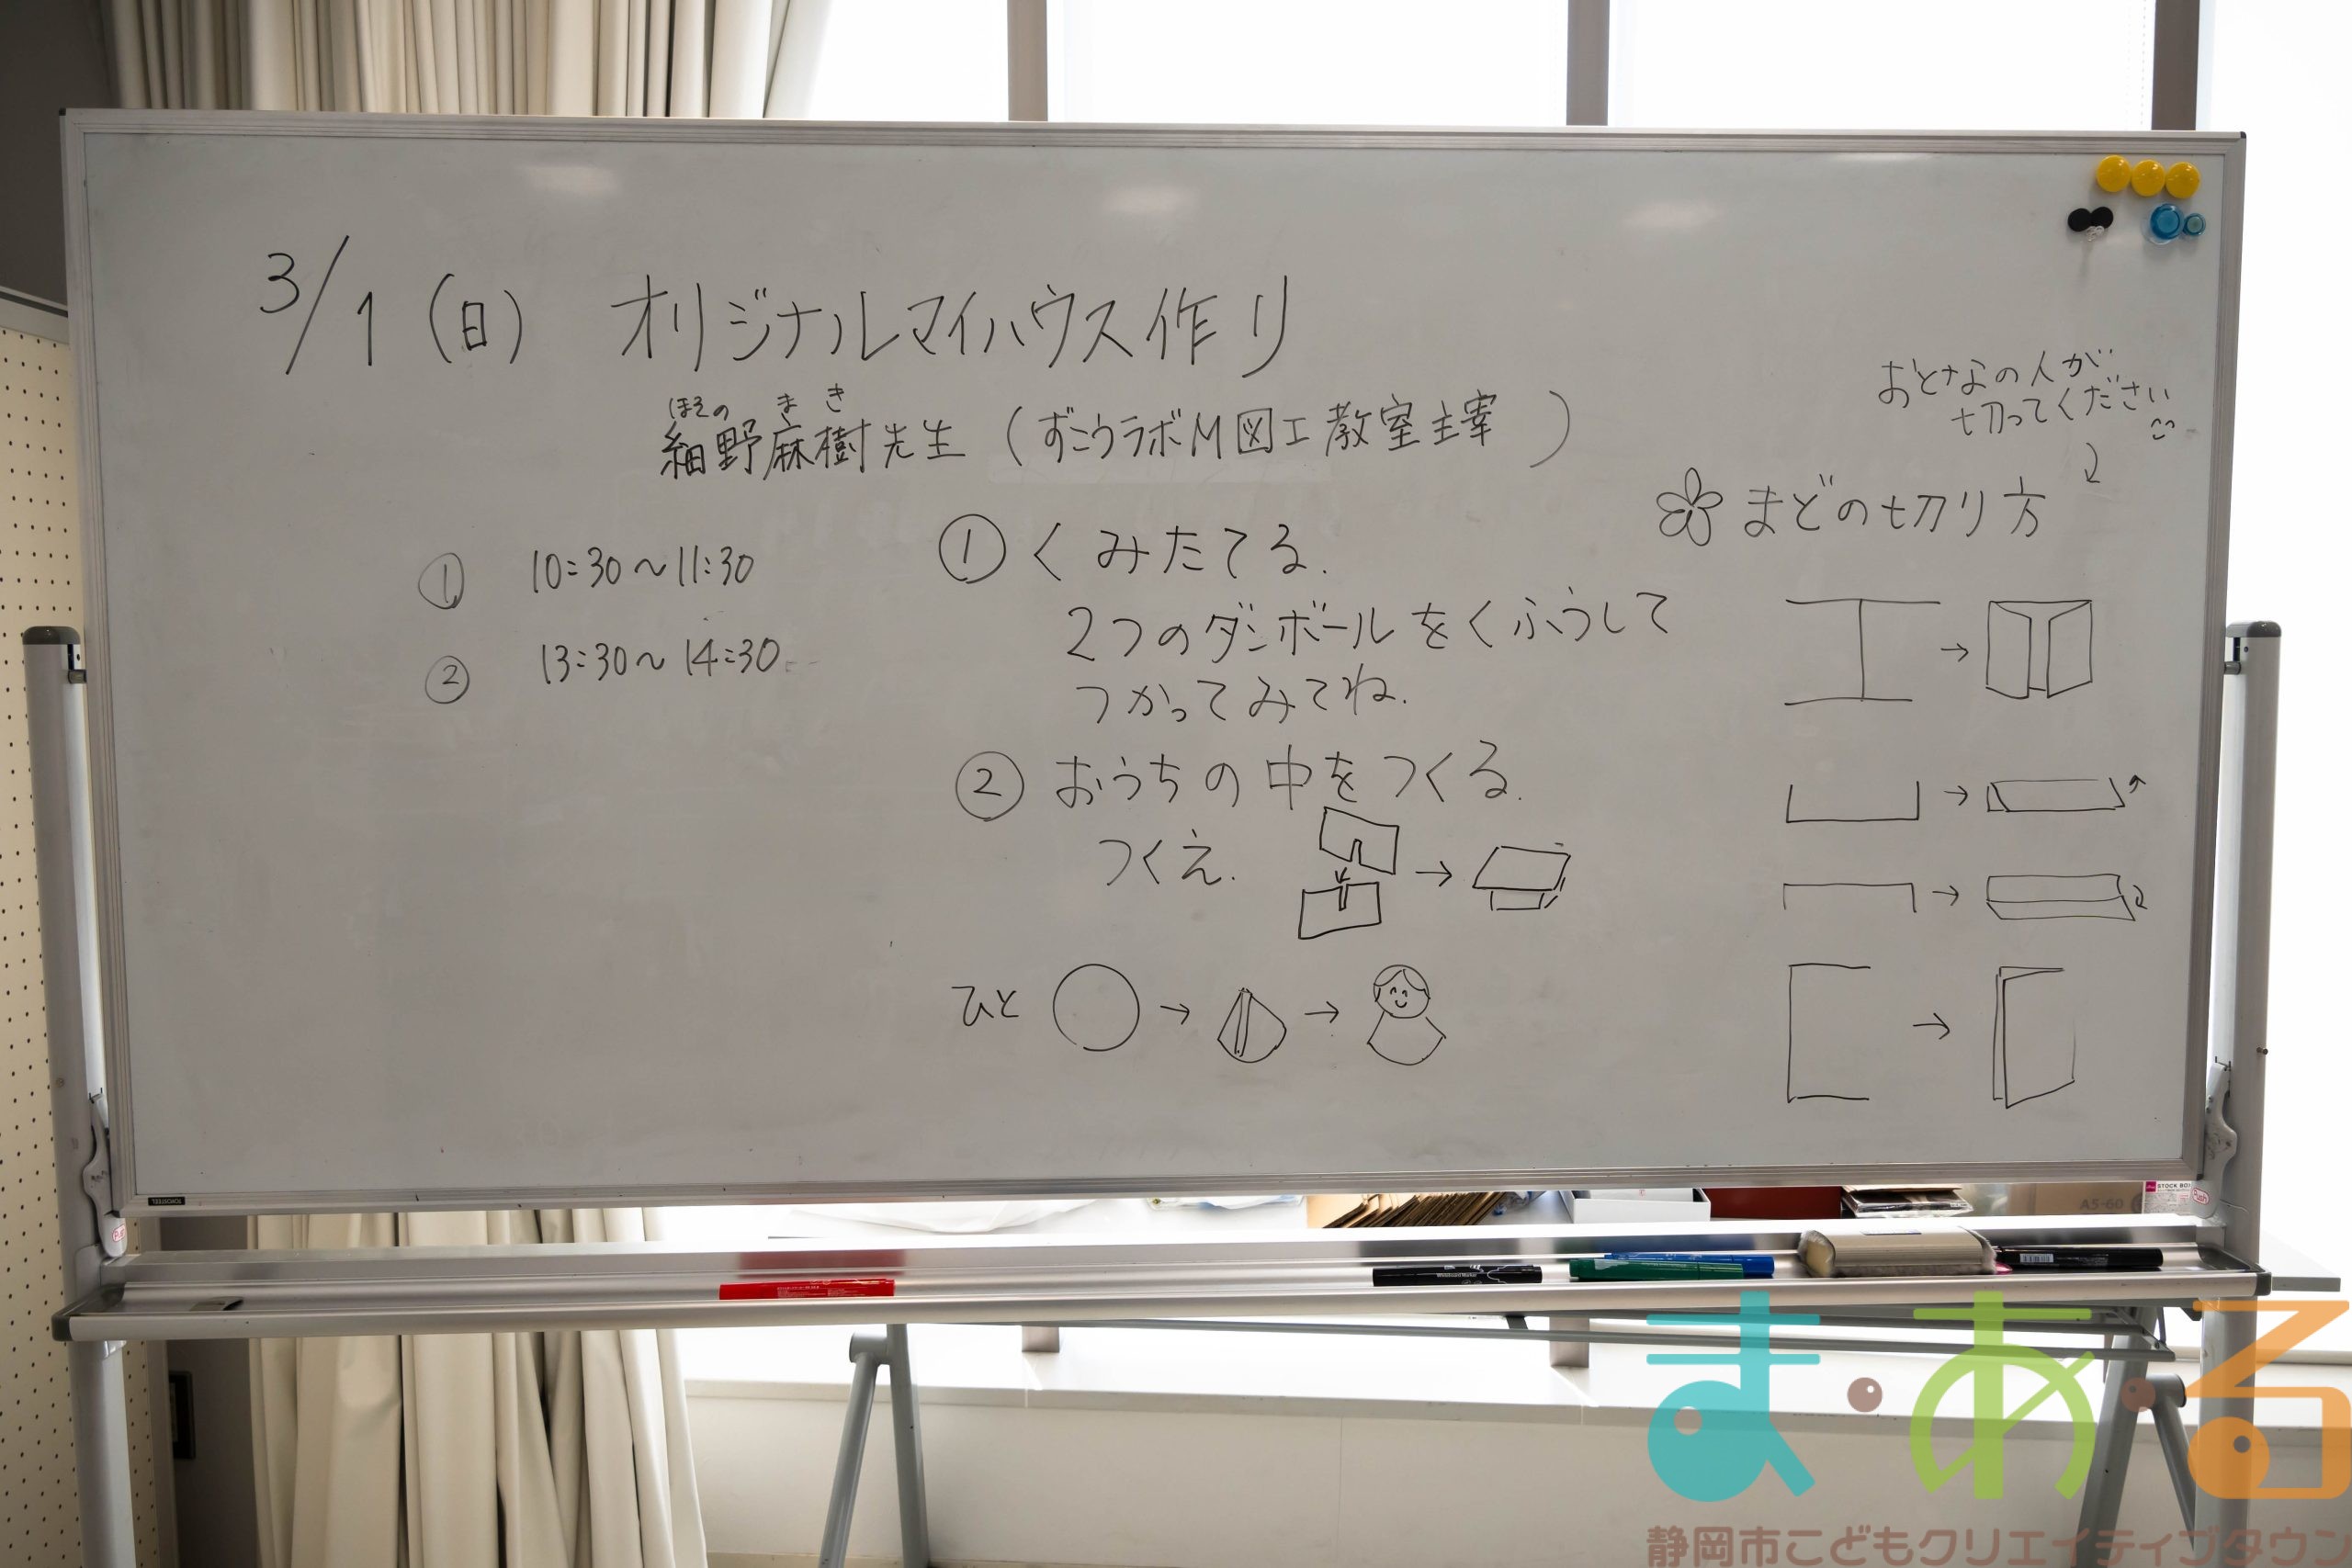 3/1 (日) オリジナルマイハウス作り
ほその ま き
細野麻樹先生 (ずこうラボM図工教室主宰 )
① 10:30〜11:30
② 13:30〜14:30
① くみたてる.
2つのダンボールをくふうして
つかってみてね.
② おうちの中をつくる.
つくえ.
ひと
おとなの人が
切ってください
まどの切り方
STOCK BOX
A5-60
Push
Push
ま・あ・る
静岡市こどもクリエイティブタウン